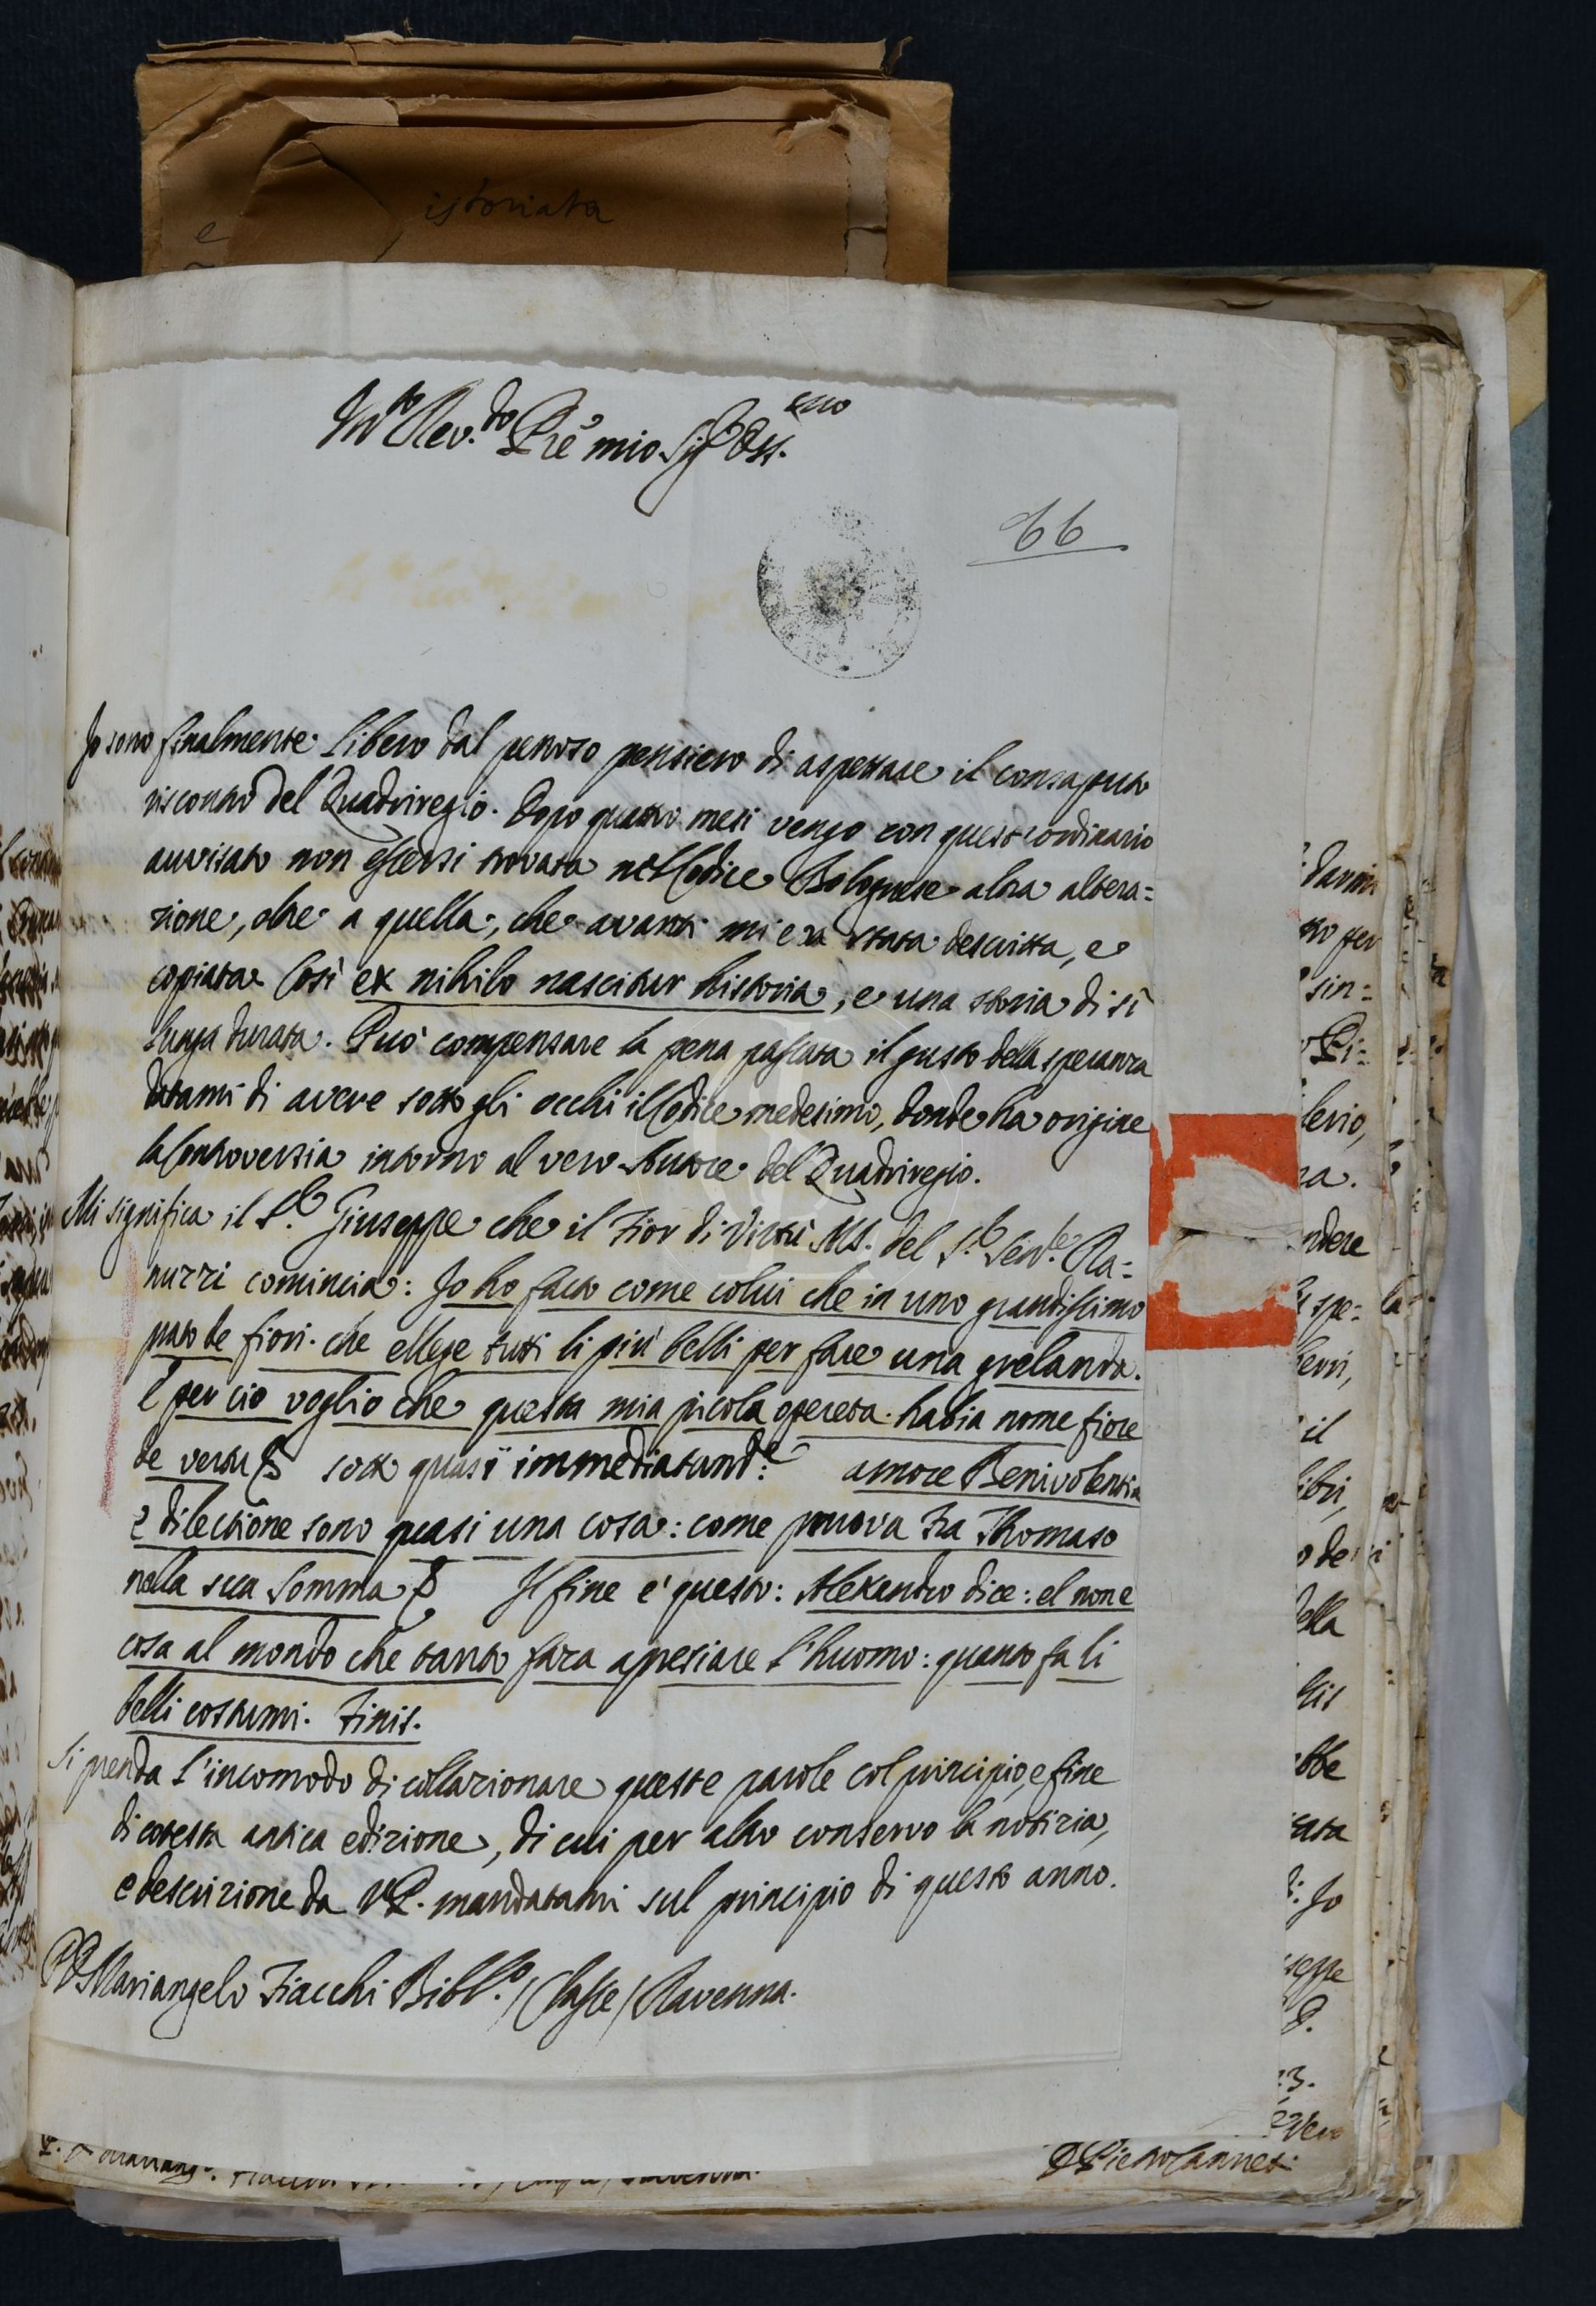 istoriata
M.to Rev.do Pre mio Sig.r Oss.mo
66
Io sono finalmente libero dal penoso pensiero di aspettare il consaputo
riscontro del Quadriregio. Dopo quattro mesi vengo con quest'ordinario
avvisato non essersi trovata nel Codice Bolognese altra altera=
zione, oltre a quella, che avanti mi era stata descritta, e
copiata. Così ex nihilo nascitur historia, e una storia di sì
lunga durata. Può compensare la pena passata il gusto della speranza
datami di avere sotto gli occhi il Codice medesimo, donde ha origine
la Controversia intorno al vero Autore del Quadriregio.
Mi significa il S.r Giuseppe che il Fior di Virtù MS. del S.r Sen.re Ra=
nuzzi comincia: Io ho facto come colui che in uno grandissimo
prato de fiori. che ellege tutti li più belli per fare una grelanda.
E per ciò voglio che questa mia picola opereta. habia nome fiore
de vertu & sotto quasi immediatamte: amore Benivolentia
e dilectione sono quasi una cosa: come pruova Fra Thomaso
nella sua Somma & Il fine è questo: Alexandro dice: el non e
cosa al mondo che tanto fara apresiare l'huomo: quanto fa li
belli costumi. Finis.
Si prenda l'incomodo di collazionare queste parole col principio, e fine
di cotesta antica edizione, di cui per altro conservo la notizia,
e descrizione da V.P. mandatami sul principio di questo anno.
P.D. Mariangelo Fiacchi Bibl.o / Classe / Ravenna.
D Pietro Cannet